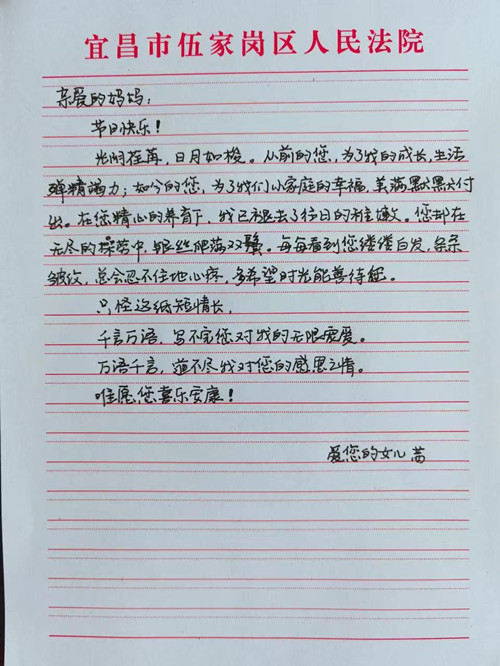 宜昌市伍家岗区人民法院
亲爱的妈妈:
节日快乐!
光阴荏苒,日月如梭。从前的您,为了我的成长,生活
殚精竭力;如今的您,为了我们小家庭的幸福,美满默默付
出。在您精心的养育下,我已褪去了往日的稚嫩。您却在
无尽的操劳中,银丝爬落双鬓。每每看到您缕缕白发,条条
皱纹,总会忍不住地心疼,多希望时光能善待您。
只怪这纸短情长,
千言万语,写不完您对我的无限宠爱。
万语千言,道不尽我对您的感恩之情。
唯愿您喜乐安康!
爱您的女儿